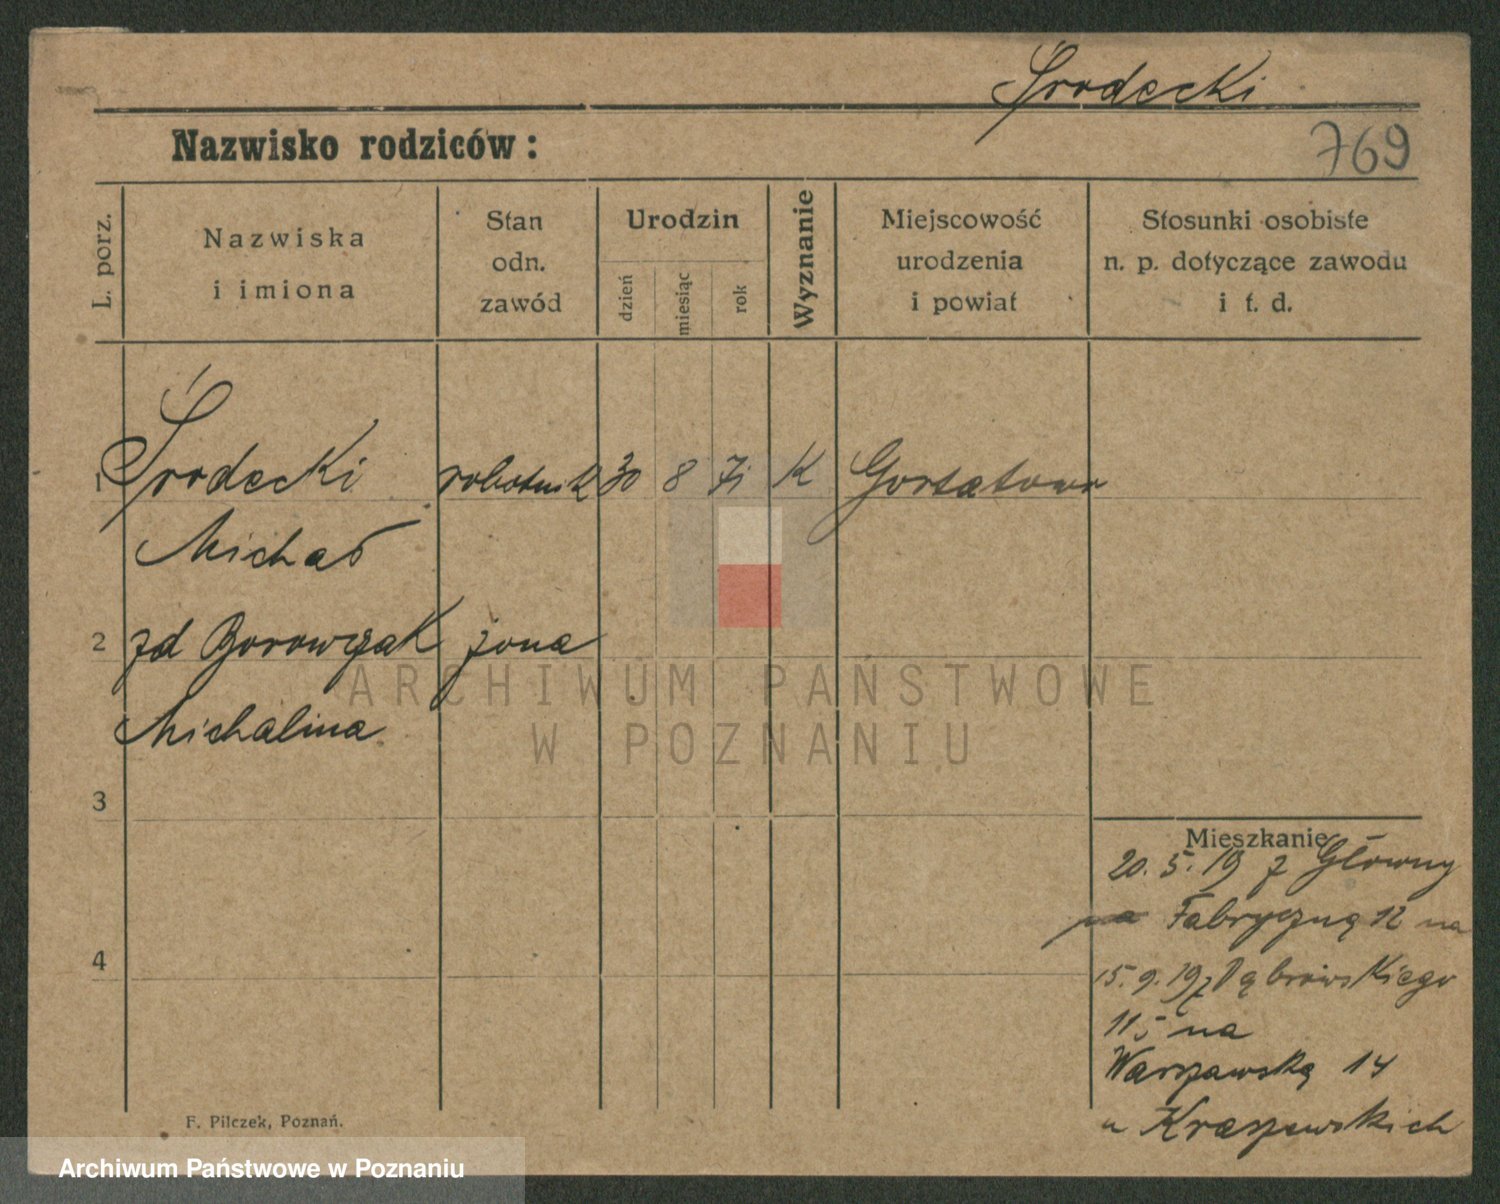 Środecki
Nazwisko rodziców:
769
L. porz.
Nazwiska
i imiona
Stan
odn.
zawód
Urodzin
dzień
miesiąc
rok
Wyznanie
Miejscowość
urodzenia
i powiat
Stosunki osobiste
n. p. dotyczące zawodu
i t. d.
1 Środecki robotnik 30 8 71 K Gortatowo
Michał
2 zd Borowczak żona
Michalina
ARCHIWUM PAŃSTWOWE
W POZNANIU
3
Mieszkanie
20. 5. 19 z Główny
na Fabryczną 12 na
4
15. 9. 19 z Dąbrówskiego
115 na
Warszawską 14
u Kraszewskich
F. Pilczek, Poznań.
Archiwum Państwowe w Poznaniu